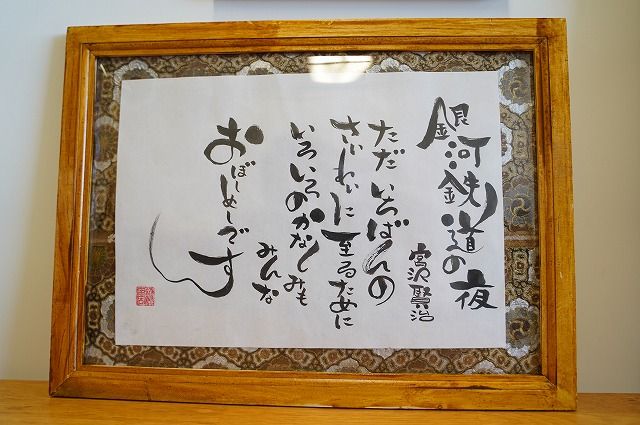 銀河鉄道の夜
宮沢賢治
ただいちばんの
さいわいに至るために
いろいろのかなしみも
みんな
おぼしめしです